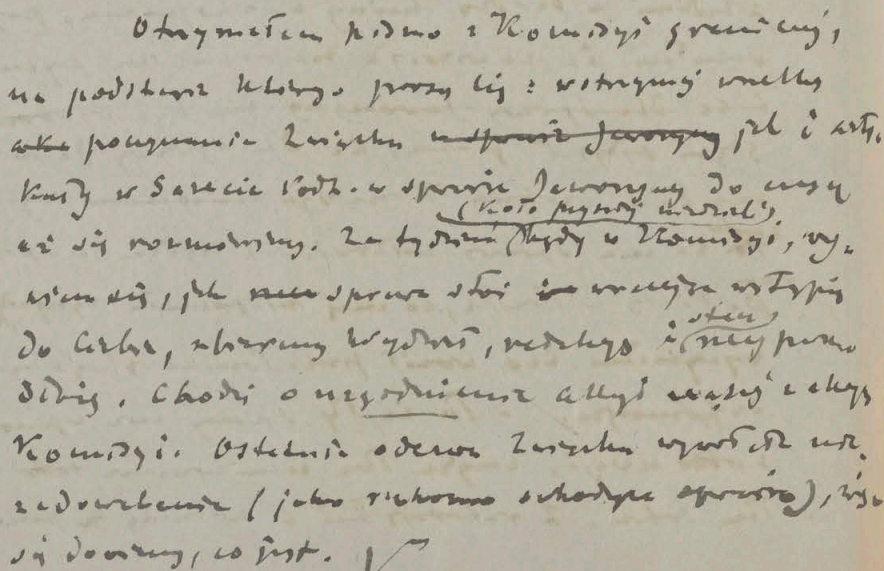 Otrzymałem pismo z Komisyi granicznej,
na podstawie którego proszę Cię: wstrzymaj wszelkie
poczynania Związku w sprawie Jaworzyny jak i arty-
kuły w Gazecie Podh. w sprawie Jaworzyny do czasu
(koło przyszłej niedzieli)
aż się rozmówimy. Za tydzień będę w Komisyi, wy-
wiem się, jak sprawa stoi i wracając wstąpię
do Ciebie, zbierzemy Wydział, redakcyę i
. Chodzi o uzgodnienie akcyi naszej z akcyą
Komisyi. Ostatnia odezwa Związku wywołała nie-
zadowolenie (jako rzekomo szkodząca sprawie), więc
się dowiemy, co jest.